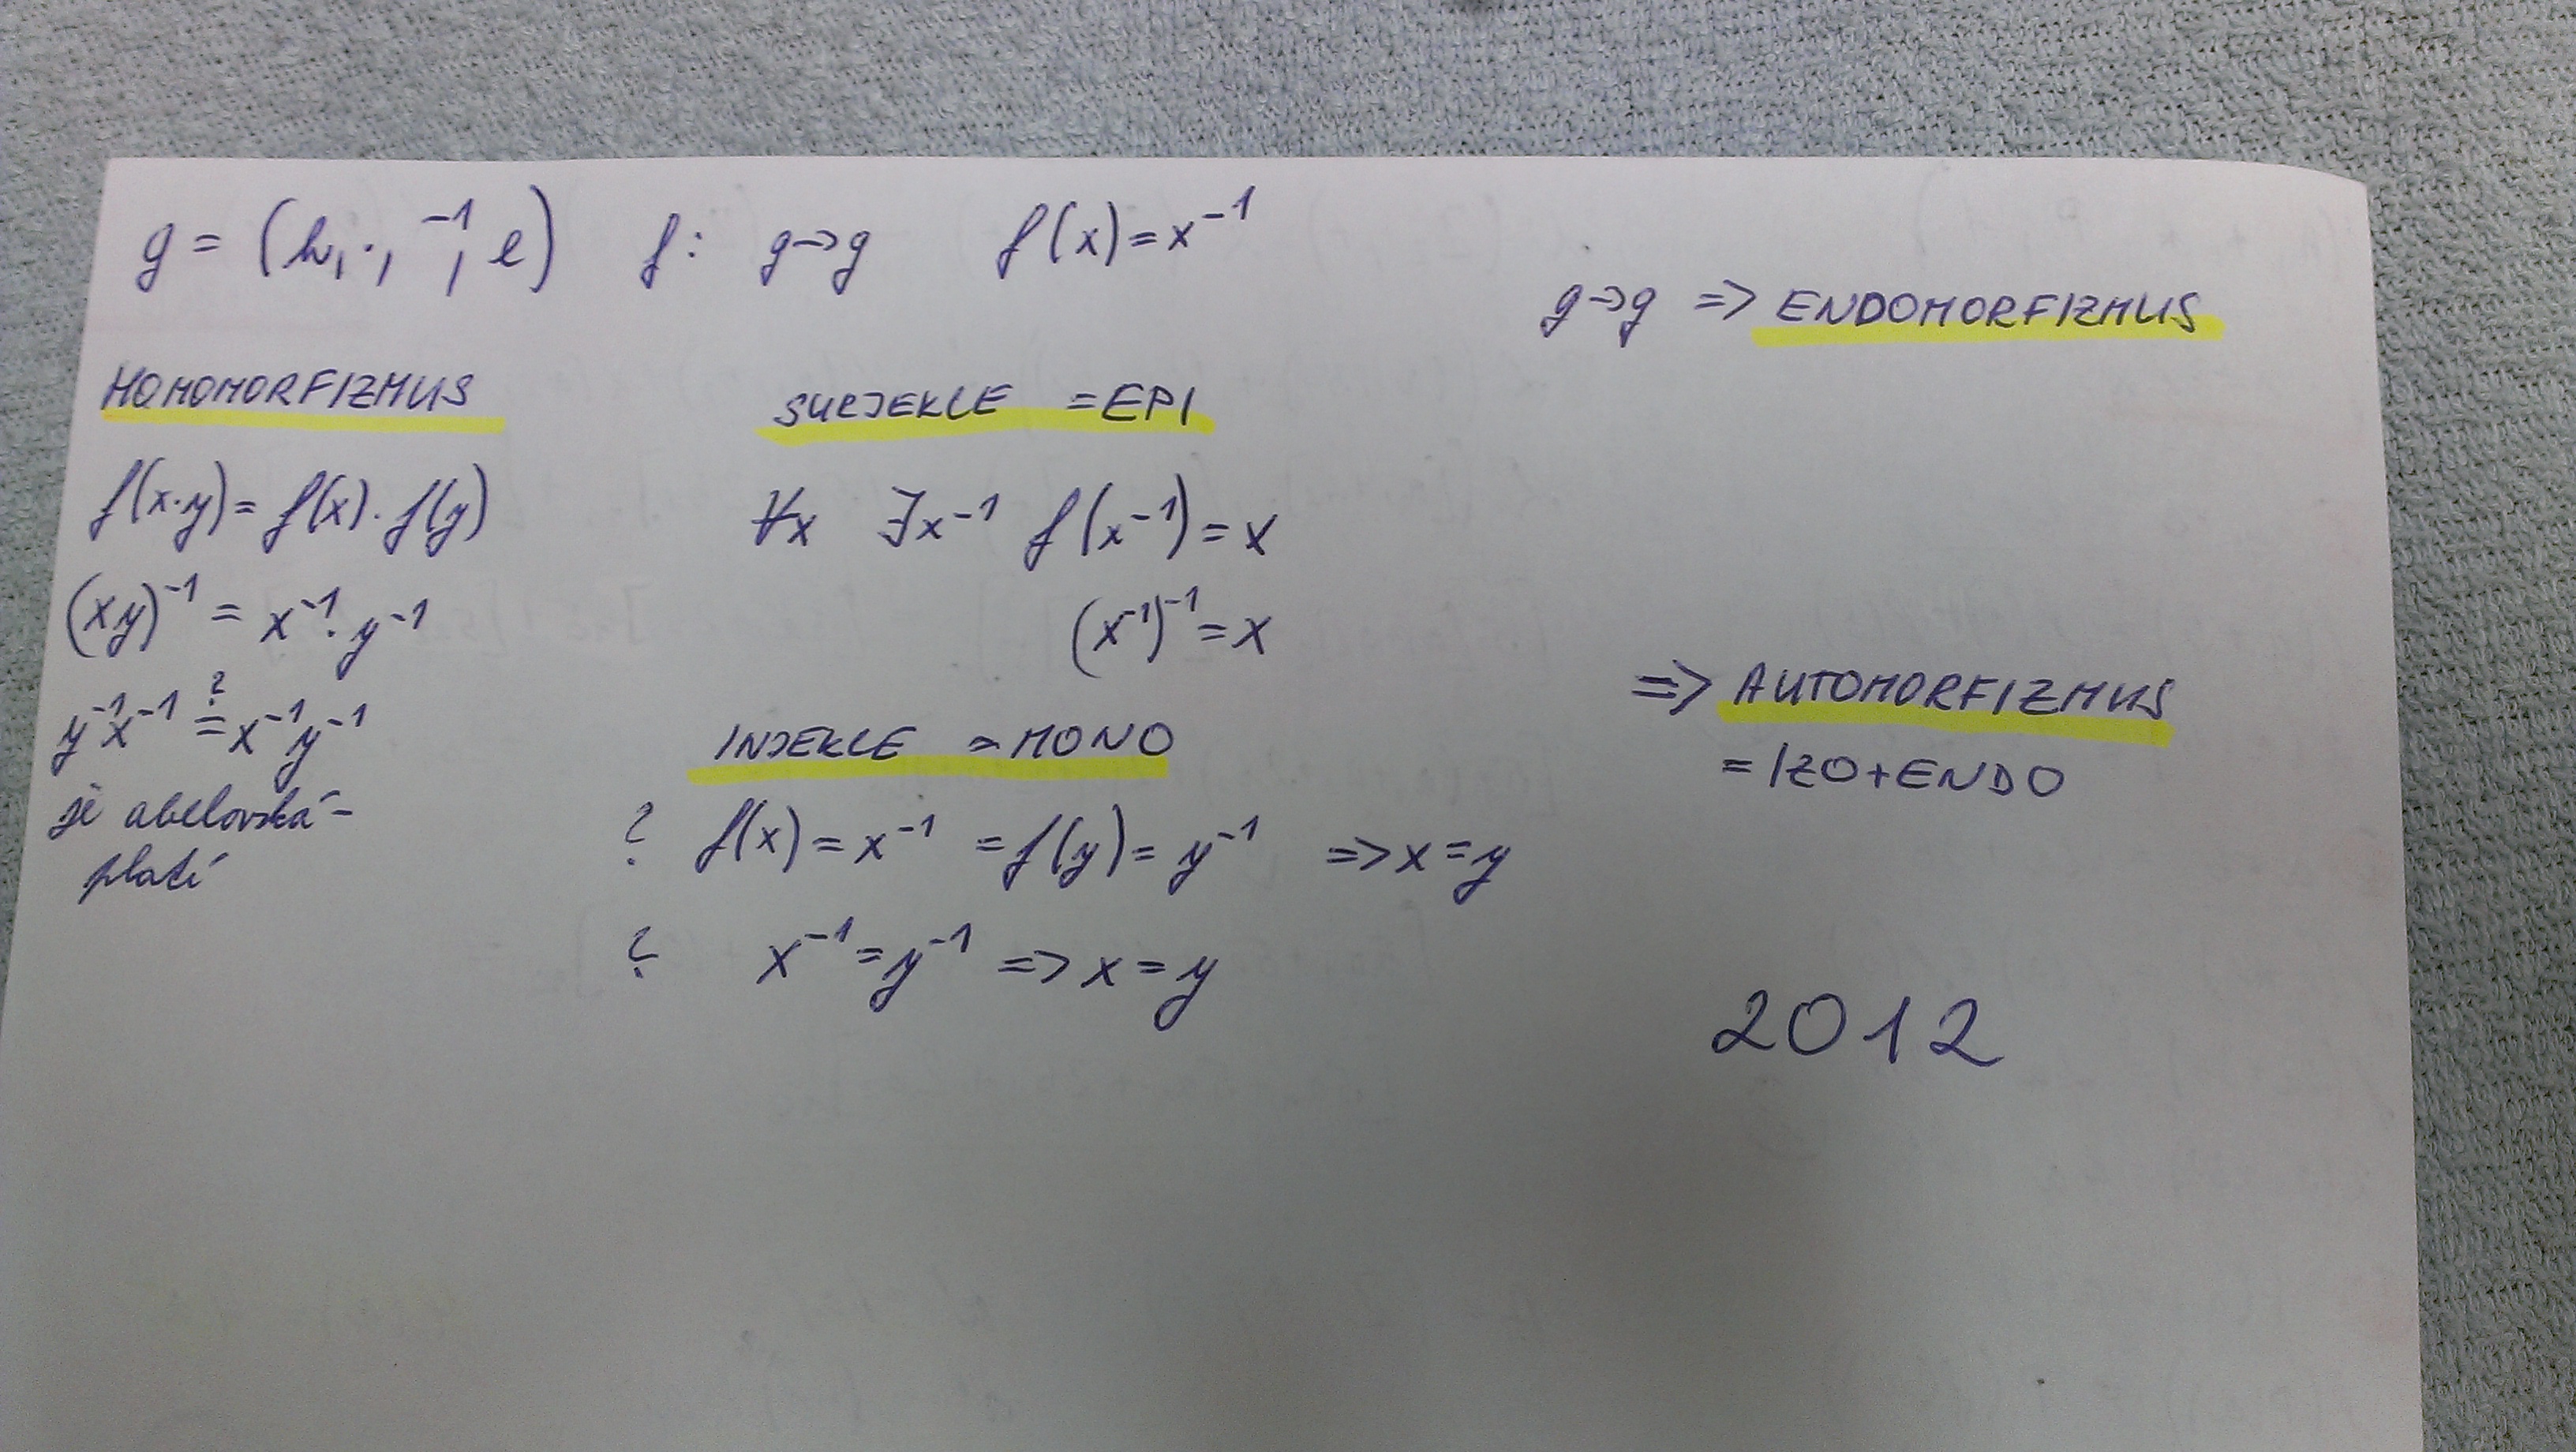 g = (h, ·, ⁻¹, e) f: g→g f(x)=x⁻¹
g→g => ENDOMORFIZMUS
HOMOMORFIZMUS
f(x·y)= f(x)·f(y)
(xy)⁻¹ = x⁻¹·y⁻¹
y⁻¹x⁻¹ ?= x⁻¹y⁻¹
je abelovská -
platí
SURJEKCE =EPI
∀x ∃x⁻¹ f(x⁻¹)=x
(x⁻¹)⁻¹=x
INJEKCE =MONO
? f(x)=x⁻¹ =f(y)=y⁻¹ =>x=y
? x⁻¹=y⁻¹ =>x=y
=> AUTOMORFIZMUS
=IZO+ENDO
2012